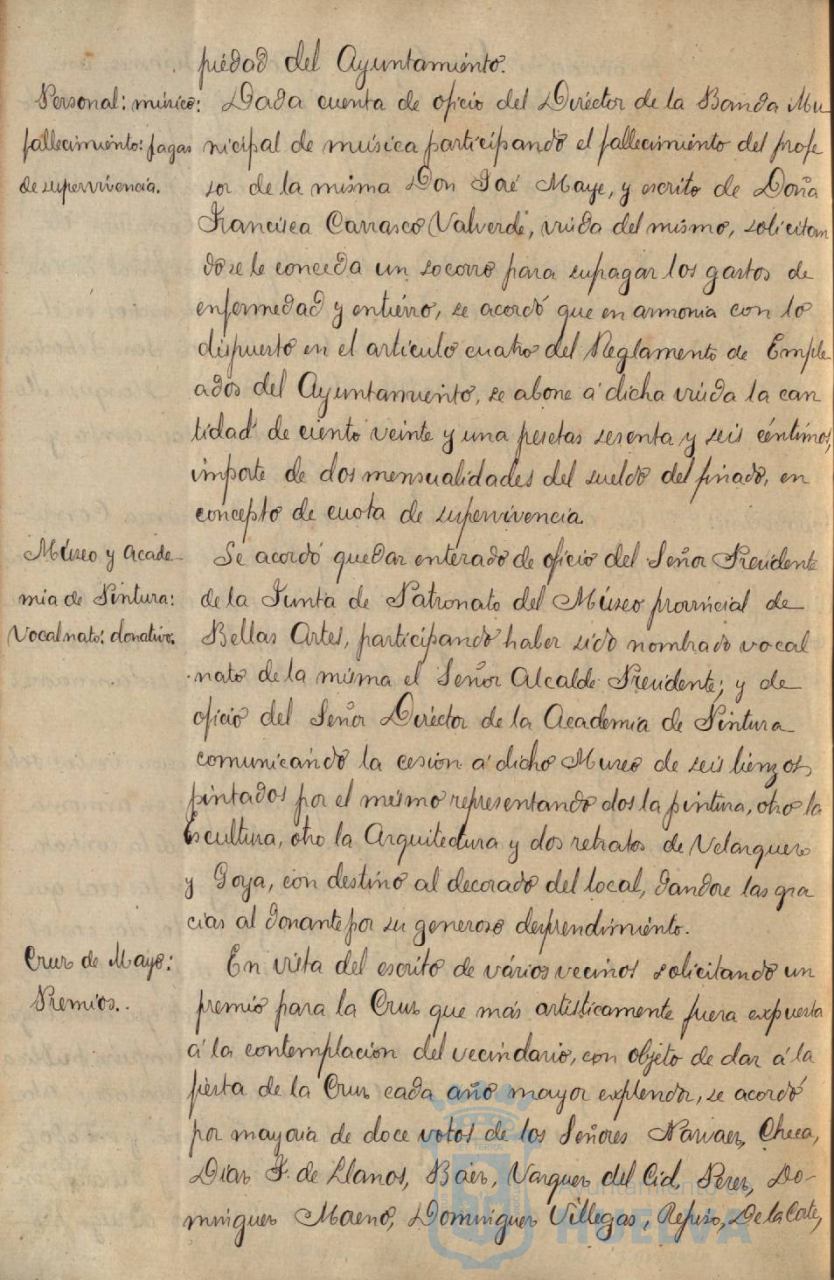 piedad del Ayuntamiento.
Personal: músico: Dada cuenta de oficio del Diréctor de la Banda Mu
fallecimiento: pagas nicipal de música participando el fallecimiento del profe
de supervivencia. sor de la misma Don José Maye, y escrito de Doña
Francisca Carrasco Valverde, viuda del mismo, solicitan
dose le conceda un socorro para supagar los gastos de
enfermedad y entierro, se acordó que en armonia con lo
dispuesto en el articulo cuatro del Reglamento de Emple
ados del Ayuntamiento, se abone á dicha viuda la can
tidad de ciento veinte y una pesetas sesenta y seis céntimos,
importe de dos mensualidades del sueldo del finado, en
concepto de cuota de supervivencia.
Múseo y Acade- Se acordó quedar enterado de oficio del Señor Presidente
mia de Pintura: de la Junta de Patronato del Múseo provincial de
Vocal nato: donativo. Bellas Artes, participando haber sido nombrado vocal
nato de la misma el Señor Alcalde Presidente; y de
oficio del Señor Diréctor de la Academia de Pintura
comunicando la cesión á dicho Museo de seis lienzos,
pintados por el mismo representando dos la pintura, otro la
Escultura, otro la Arquitectura y dos retratos de Velazquez
y Goya, con destino al decorado del local, dandose las gra
cias al donante por su generoso desprendimiento.
Cruz de Mayo: En vista del escrito de vários vecinos solicitando un
Premios. premio para la Cruz que más artísticamente fuera expuesta
á la contemplación del vecindario, con objeto de dar á la
fiesta de la Cruz cada año mayor explendor, se acordó
por mayoria de doce votos de los Señores Narvaez, Checa,
Diaz F. de Llanos, Báez, Vazquez del Cid, Perez, Do-
minguez Maeno, Dominguez Villegas, Repiso, De la Corte,
Ayuntamiento de
HUELVA